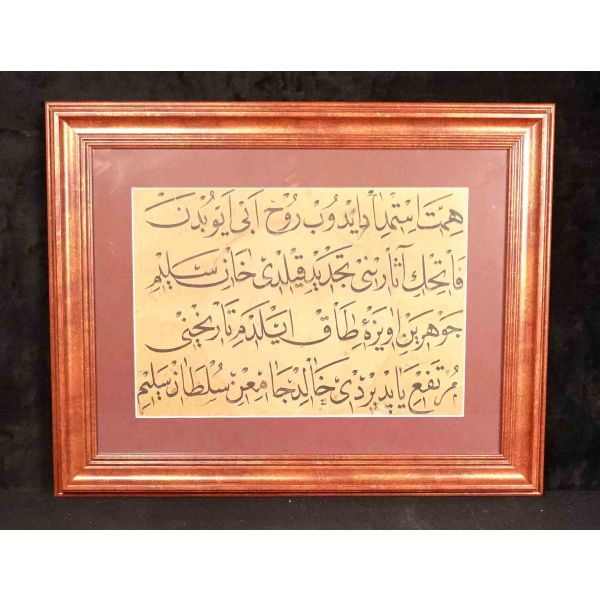 همتا استمداد ايدوب روح ابى ايوبدن
فاتحك آثارينى تجديد قيلدى خان سليم
جوهرين اويزهٔ طاق ايلدم تاريخنى
مرتفع ياپديردى خالد جامعن سلطان سليم